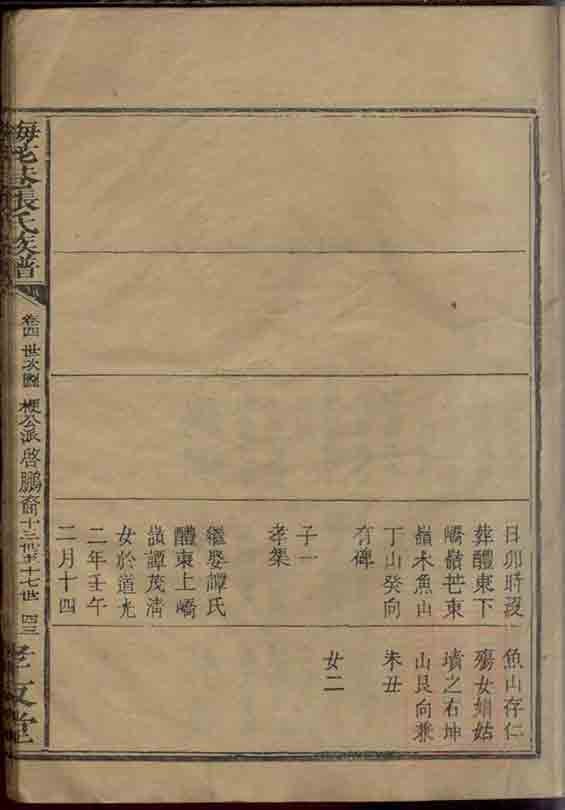 日卯時歿
葬醴東下
嶠嶺芒東
嶺木魚山
丁山癸向
有碑
子一
孝集
繼娶譚氏
醴東上嶠
嶺譚茂清
女於道光
二年壬午
二月十四
魚山存仁
殤女娟姑
墳之右坤
山艮向兼
未丑
女二
梅花巷張氏族譜
卷四 世次圖 梗公派啓鵬裔十三世至十七世 四三
孝友堂